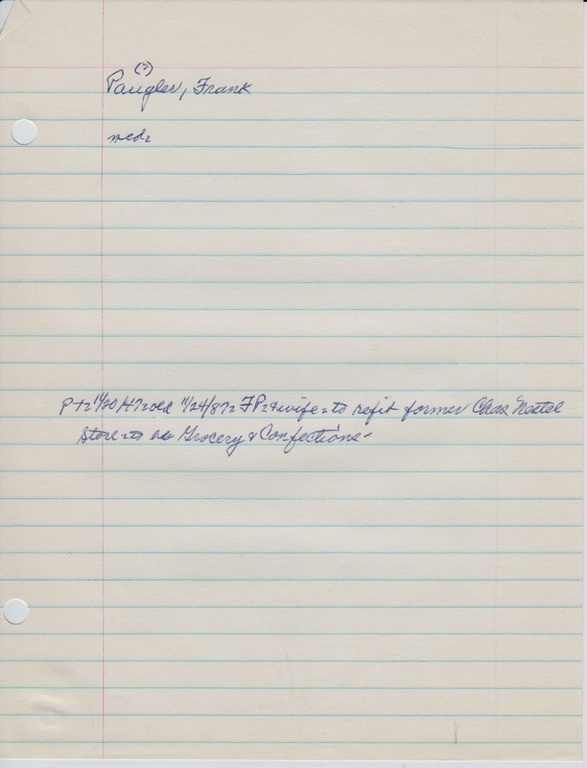 (?)
Paugler, Frank
med=
P+= 11/20 11/24/87= FP=&wife=to refit former Chas Nestel
Store=to Grocery & Confections=